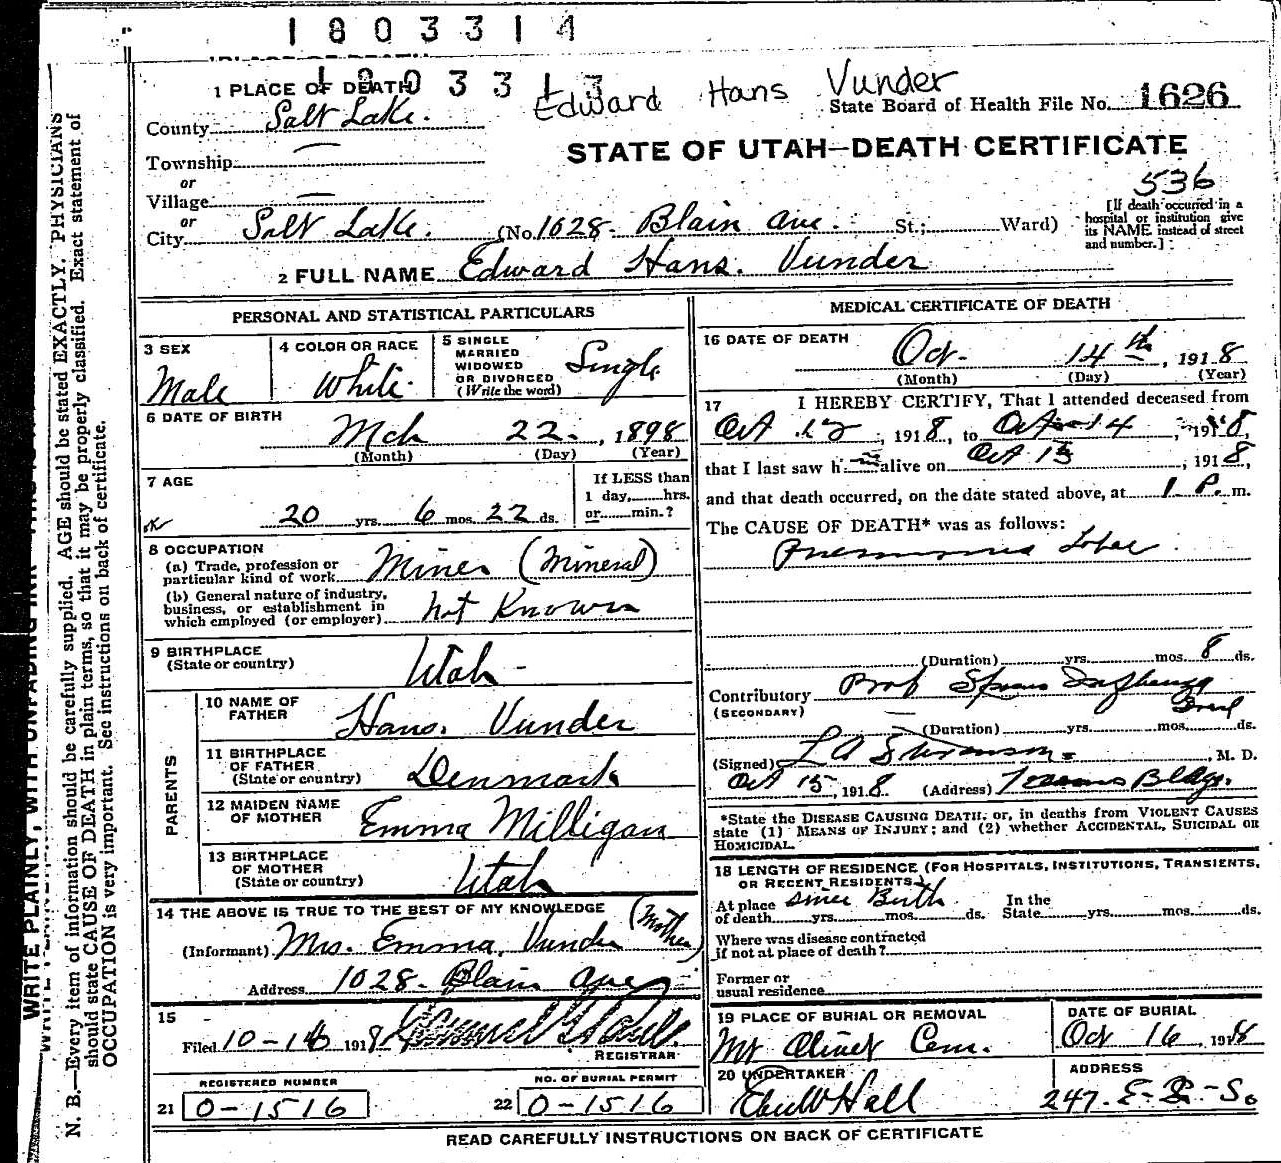 1803314
1803313
Edward Hans Vunder
1 PLACE OF DEATH
State Board of Health File No. 1626
County Salt Lake.
STATE OF UTAH—DEATH CERTIFICATE
Township —
536
or
Village —
or
City Salt Lake. (No. 1628 Blain Ave. St.; Ward)
[If death occurred in a hospital or institution give its NAME instead of street and number.]
2 FULL NAME Edward Hans. Vunder
PERSONAL AND STATISTICAL PARTICULARS
3 SEX Male
4 COLOR OR RACE White
5 SINGLE MARRIED WIDOWED OR DIVORCED (Write the word) Single
6 DATE OF BIRTH Mch 22, 1898
(Month) (Day) (Year)
7 AGE
20 yrs. 6 mos. 22 ds.
If LESS than 1 day, hrs. or min.?
8 OCCUPATION
(a) Trade, profession or particular kind of work Miner (Mineral)
(b) General nature of industry, business, or establishment in which employed (or employer) Not Known
9 BIRTHPLACE (State or country) Utah
PARENTS
10 NAME OF FATHER Hans. Vunder
11 BIRTHPLACE OF FATHER (State or country) Denmark
12 MAIDEN NAME OF MOTHER Emma Milligan
13 BIRTHPLACE OF MOTHER (State or country) Utah
14 THE ABOVE IS TRUE TO THE BEST OF MY KNOWLEDGE
(Informant) Mrs. Emma Vunder (Mother)
Address 1028 Blain Ave
15
Filed 10-16 1918
REGISTRAR
REGISTERED NUMBER
21 0-1516
NO. OF BURIAL PERMIT
22 0-1516
MEDICAL CERTIFICATE OF DEATH
16 DATE OF DEATH Oct. 14th, 1918
(Month) (Day) (Year)
17 I HEREBY CERTIFY, That I attended deceased from
Oct, 1918, to Oct 14, 1918,
that I last saw him alive on Oct 13, 1918,
and that death occurred, on the date stated above, at 1 P. m.
The CAUSE OF DEATH* was as follows:
Pneumonia Lobar
(Duration) yrs. mos. 8 ds.
Contributory Prob Spanish Influenza
(SECONDARY)
(Duration) yrs. mos. ds.
(Signed) L A Swanson, M. D.
Oct 15, 1918 (Address) Bldg.
*State the DISEASE CAUSING DEATH, or, in deaths from VIOLENT CAUSES
state (1) MEANS OF INJURY; and (2) whether ACCIDENTAL, SUICIDAL OR
HOMICIDAL.
18 LENGTH OF RESIDENCE (FOR HOSPITALS, INSTITUTIONS, TRANSIENTS, OR RECENT RESIDENTS.)
At place of death since Birth yrs. mos. ds. In the State yrs. mos. ds.
Where was disease contracted if not at place of death?
Former or usual residence
19 PLACE OF BURIAL OR REMOVAL Mt Olivet Cem.
DATE OF BURIAL Oct 16, 1918
20 UNDERTAKER Eber W Hall
ADDRESS 247. E- So
READ CAREFULLY INSTRUCTIONS ON BACK OF CERTIFICATE
WRITE PLAINLY, WITH UNFADING INK
N. B.—Every item of information should be carefully supplied. AGE should be stated EXACTLY. PHYSICIANS
should state CAUSE OF DEATH in plain terms, so that it may be properly classified. Exact statement of
OCCUPATION is very important. See instructions on back of certificate.